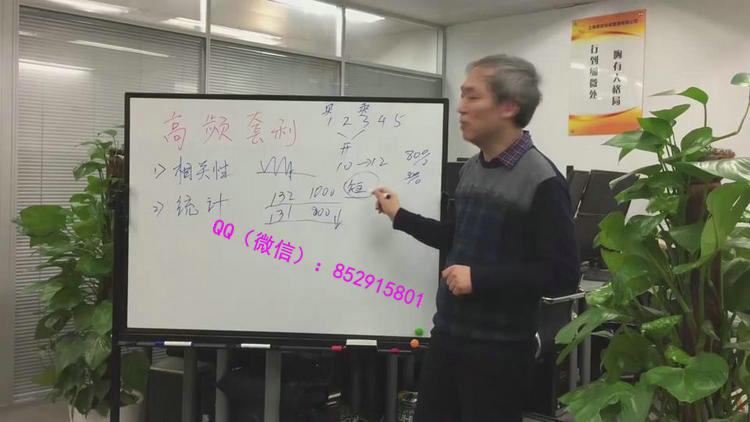 高频套利
买 卖
1 2 3 4 5
开
10→12
80%
1) 相关性
2) 统计
132 1000
131 800
短
QQ（微信）：852915801
胸有大格局
行到细微处